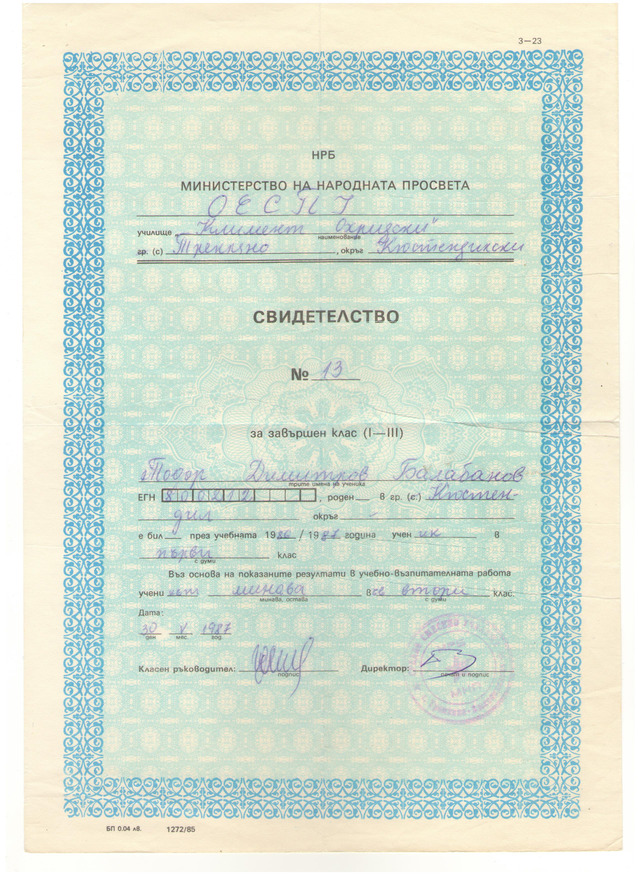 3—23
НРБ
МИНИСТЕРСТВО НА НАРОДНАТА ПРОСВЕТА
ОЕСПУ
училище „Климент Охридски"
наименование
гр. (с) Трекляно, окръг Кюстендилски
СВИДЕТЕЛСТВО
№ 13
за завършен клас (I—III)
Тодор Димитров Балабанов
трите имена на ученика
ЕГН 800212, роден в гр. (с.) Кюстен-
дил окръг -
е бил през учебната 1986 / 1987 година ученик в
първи клас
с думи
Въз основа на показаните резултати в учебно-възпитателната работа
учени минава в втори клас.
минава, остава с думи
Дата:
30 V 1987
ден мес. год.
Класен ръководител: Директор:
подпис печат и подпис
БП 0.04 лв. 1272/85